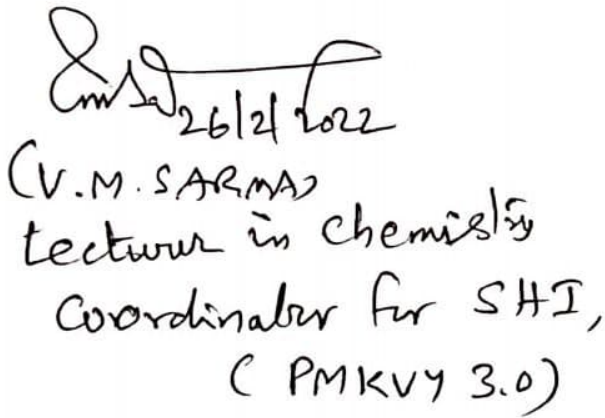 26/2/2022
(V.M. SARMA)
Lecturer in Chemistry
Coordinator for SHI,
( PMKVY 3.0)